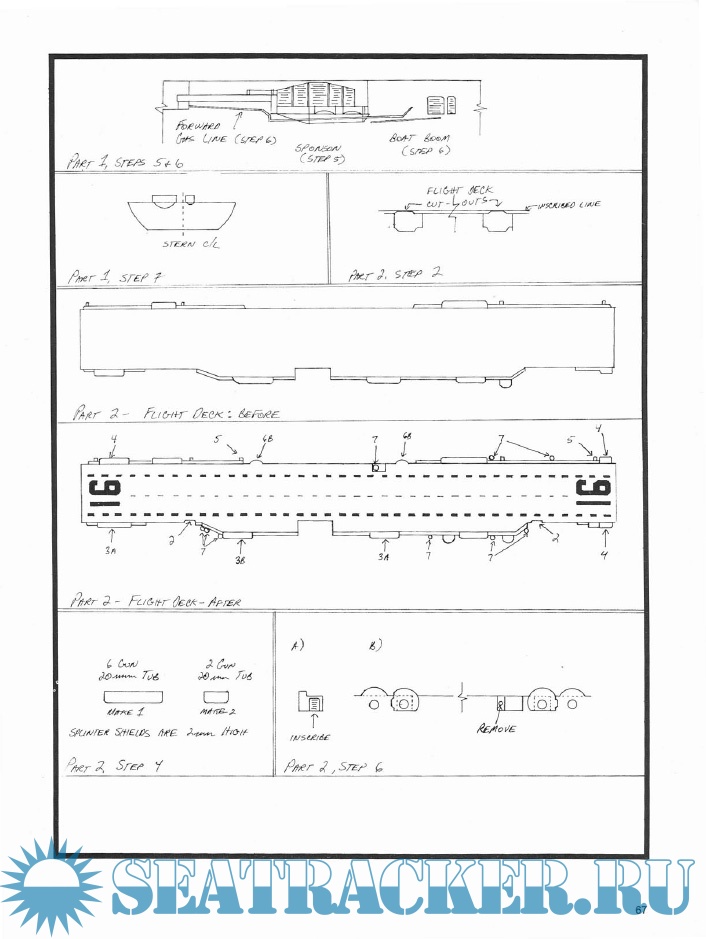 FORWARD
GAS LINE (STEP 6)
SPONSON
(STEP 5)
BOAT BOOM
(STEP 6)
PART 1, STEPS 5 & 6
STERN C/L
PART 1, STEP 7
FLIGHT DECK
CUT-OUTS
INSCRIBED LINE
PART 2, STEP 2
PART 2 - FLIGHT DECK: BEFORE
4
5
6B
7
6B
7
5
4
16
16
3A
2
7
3B
3A
7
7
2
4
PART 2 - FLIGHT DECK - AFTER
6 GUN
20mm TUB
2 GUN
20mm TUB
MAKE 1
MAKE 2
SPLINTER SHIELDS ARE 2mm HIGH
PART 2, STEP 4
A)
B)
INSCRIBE
REMOVE
PART 2, STEP 6
SEATRACKER.RU
67